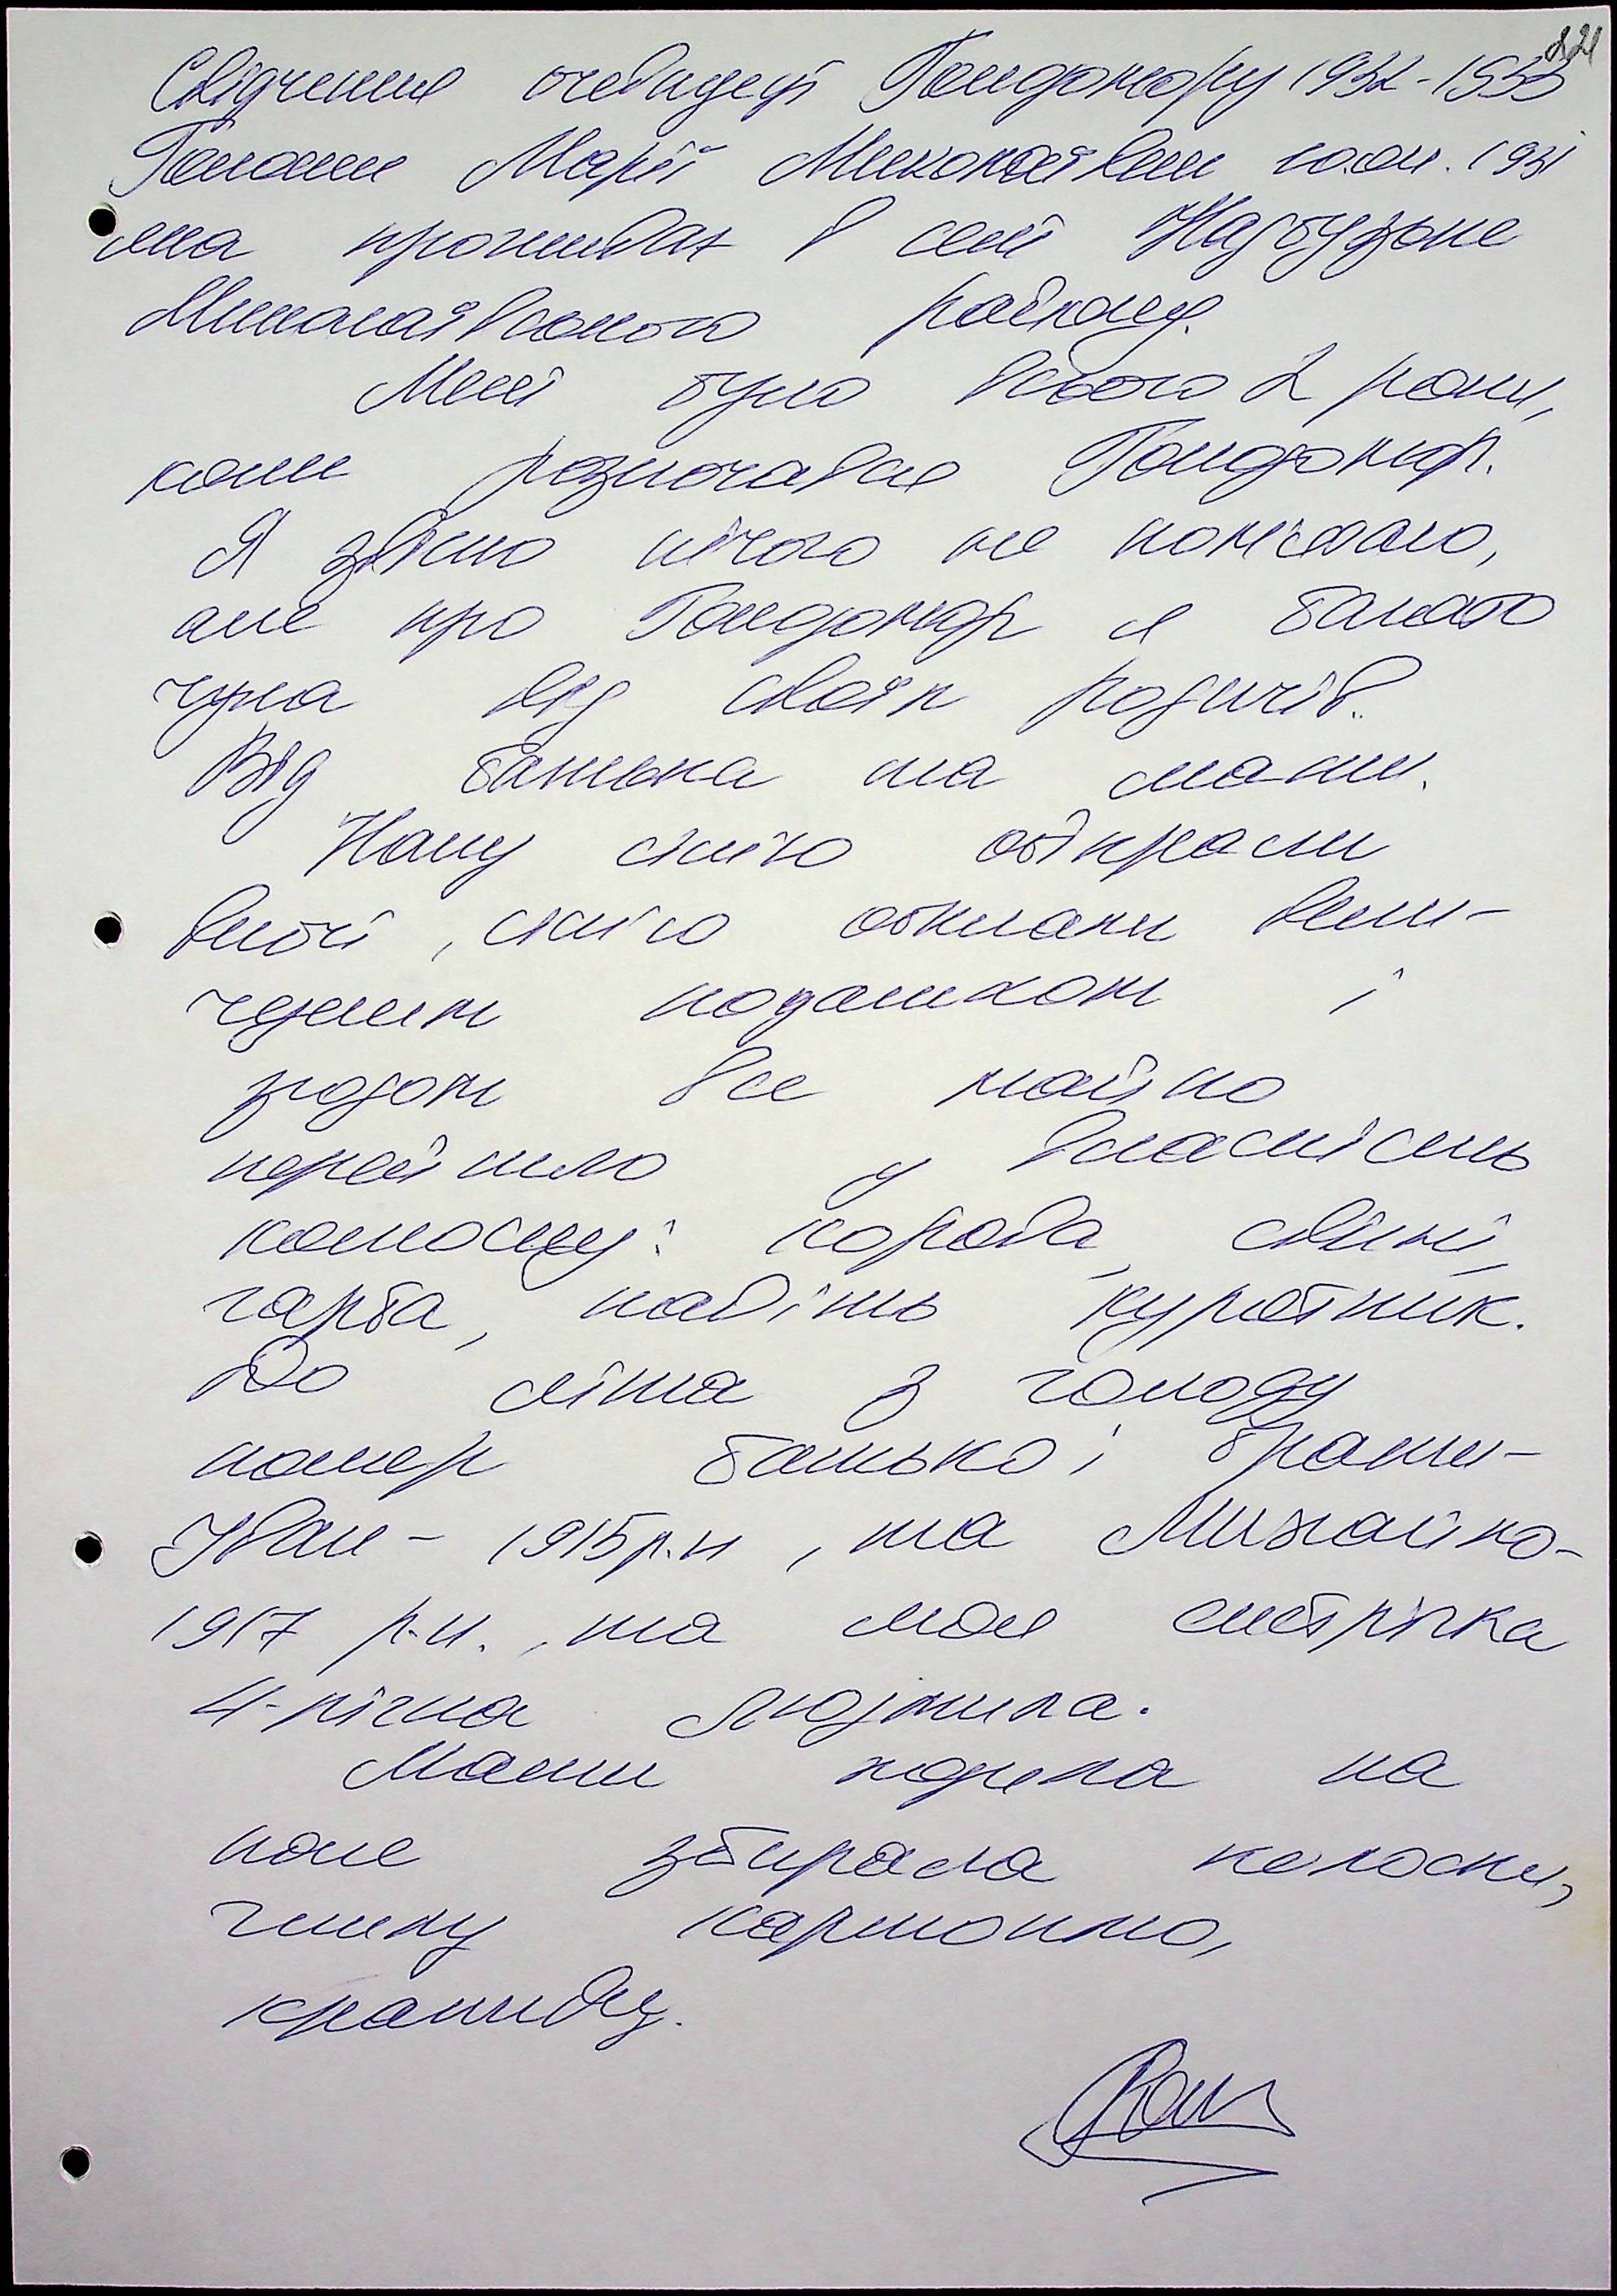 821
Свідчення очевидця Голодомору 1932-1933
Марії Миколаївни 1931
яка проживає в селі Надбузьке
Миколаївського району.
Мені було всього 2 роки,
коли розпочався Голодомор.
Я звісно нічого не пам'ятаю,
але про Голодомор я багато
чула від своїх родичів.
Від батька та мати.
Нашу сім'ю обікрали
вночі, сім'ю обклали вели-
чезним податком і
згодом все майно
перейшло у власність
колгоспу: корова, свині,
гарба, навіть курятник.
До літа з голоду
помер батько і брати-
Іван - 1915 р.н, та Михайло-
1917 р.н., та моя сестричка
4-річна Людмила.
Мати ходила на
поле збирала колоски,
гнилу картоплю,
кропиву.